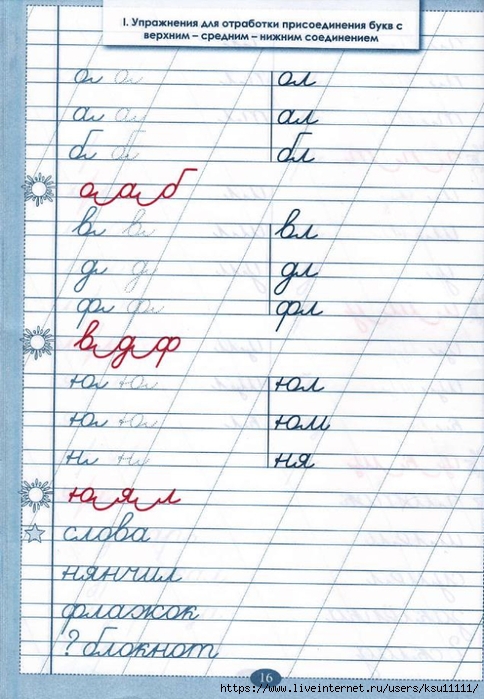 I. Упражнения для отработки присоединения букв с
верхним – средним – нижним соединением
ол
ал
бл
о а б
вл
дл
фл
в д ф
юл
юм
ня
ю я л
слова
нянчил
флажок
? блокнот
16
https://www.liveinternet.ru/users/ksu11111/